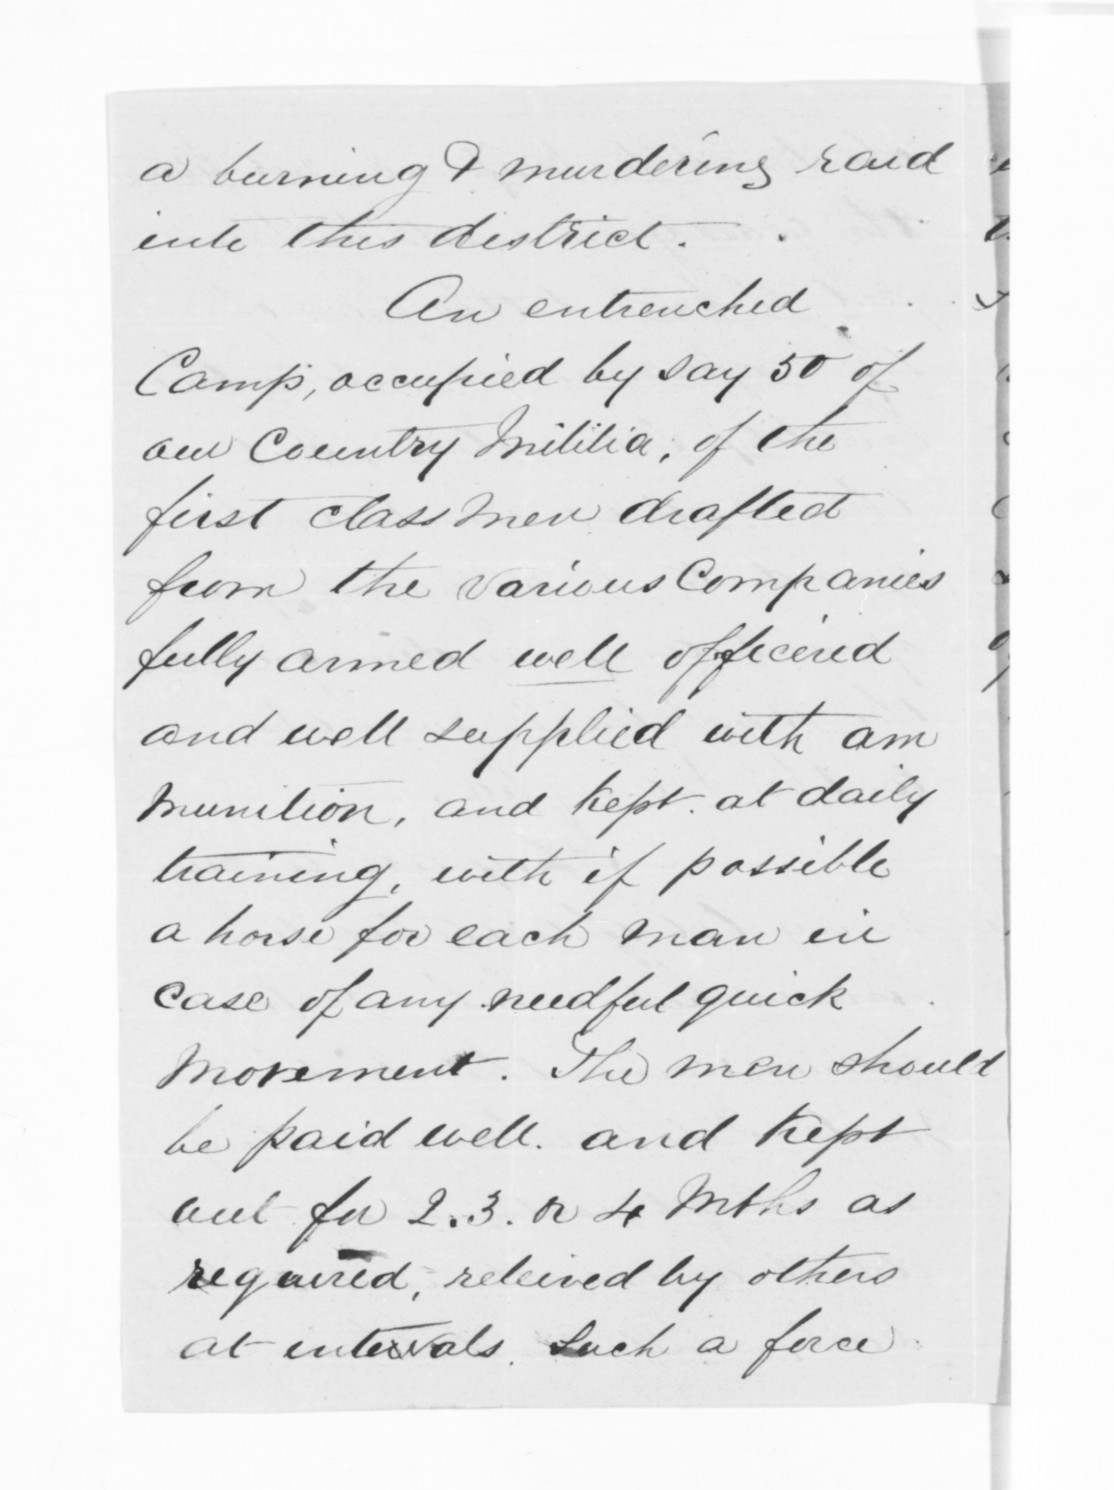 a burning & murdering raid
into this district.
An entrenched
Camp, occupied by say 50 of
our Country Militia, of the
first class men drafted
from the various Companies
fully armed well officered
and well supplied with am
munition, and kept at daily
training, with if possible
a horse for each man in
case of any needful quick
movement. The men should
be paid well. and kept
out for 2. 3. or 4 Mths as
required, releived by others
at intervals. Such a force